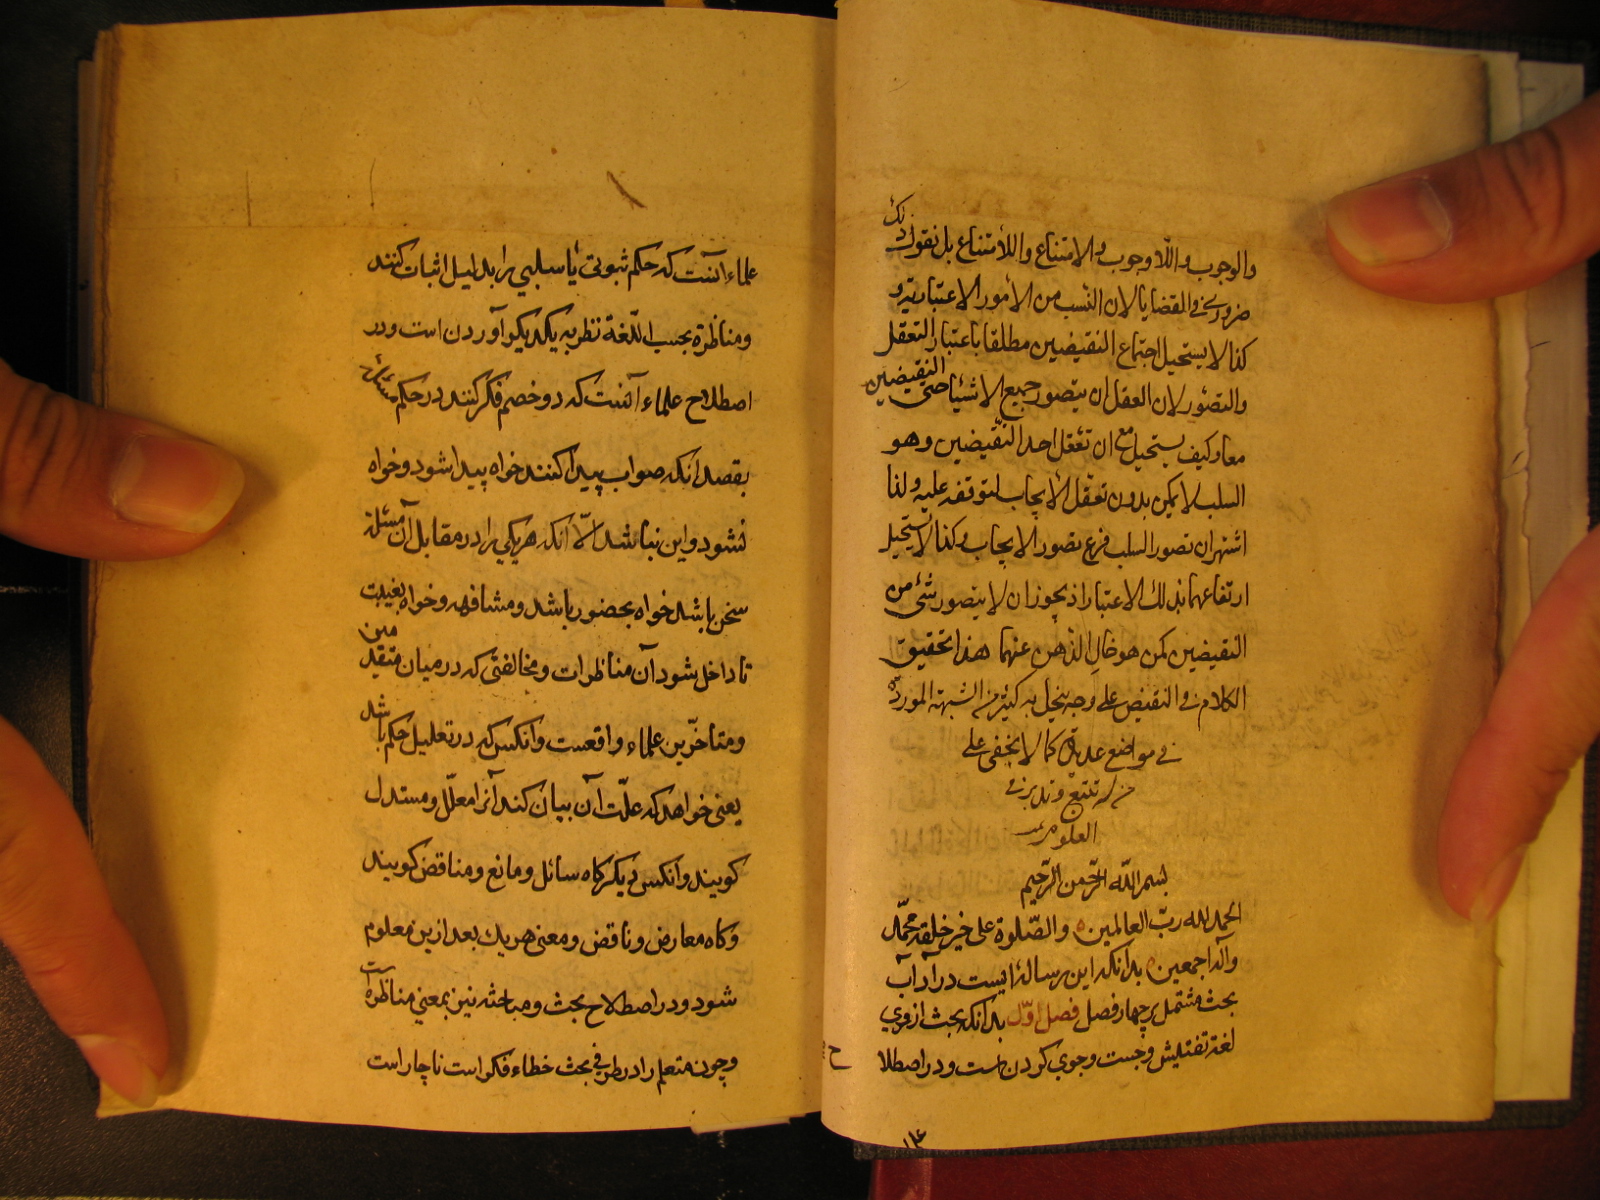 والوجوب واللا وجوب والامتناع واللا متناع بل نقول ذلك
ضروري في القضايا لان النسب من الامور الاعتبارية و
كذا لا يستحيل اجتماع النقيضين مطلقا باعتبار التعقل
والتصور لان العقل ان يتصور جميع الاشياء حتى النقيضين
معا وكيف يستحيل مع ان تعقل احد النقيضين وهو
السلب لا يمكن بدون تعقل الايجاب لتوقفه عليه ولذا
اشتهر ان تصور السلب فرع تصور الايجاب وكذا لا يستحيل
ارتفاعهما بذلك الاعتبار اذ يجوز ان لا يتصور شئ من
النقيضين كمن هو خال الذهن عنهما هذا تحقيق
الكلام في النقيض على وجه ينحل به كثير من الشبهة الموردة
في مواضع عديدة كما لا يخفى على
من له تتبع وتدبر في
العلوم
بسم الله الرحمن الرحيم
الحمد لله رب العالمين والصلوة على خير خلقه محمد
وآله اجمعين بدانكه اين رساله ايست در آداب
بحث مشتمل بر چهار فصل فصل اول بدانكه بحث از فوي
لغة تفتيش وجست وجوي كردن است ودر اصطلا
ح
علماء آنست كه حكم ثبوتي يا سلبي را بدليل اثبات كنند
ومناظره بحسب اللغة نظر به يكديكر آوردن است ودر
اصطلاح علماء آنست كه دو خصم فكر كنند در حكم مسئله
بقصد انكه صواب پيدا كنند خواه پيدا شود وخواه
نشود واين نباشد الا آنكه هر يكي را در مقابل آن مسئله
سخن باشد خواه بحضور باشد ومشافهه وخواه بغيبت
تا داخل شود آن مناظرات ومخالفتي كه در ميان متقدمين
ومتاخرين علماء واقعست وآنكس كه در تعليل حكم باشد
يعني خواهد كه علت آن بيان كند آنرا معلل ومستدل
كويند وآنكس ديكر كاه سائل ومانع ومناقض كويند
وكاه معارض وناقض ومعني هر يك بعد ازين معلوم
شود ودر اصطلاح بحث ومباحثه نيز بمعني مناظره است
وچون متعلم را در طرفي بحث خطاء فكر است ناچار است